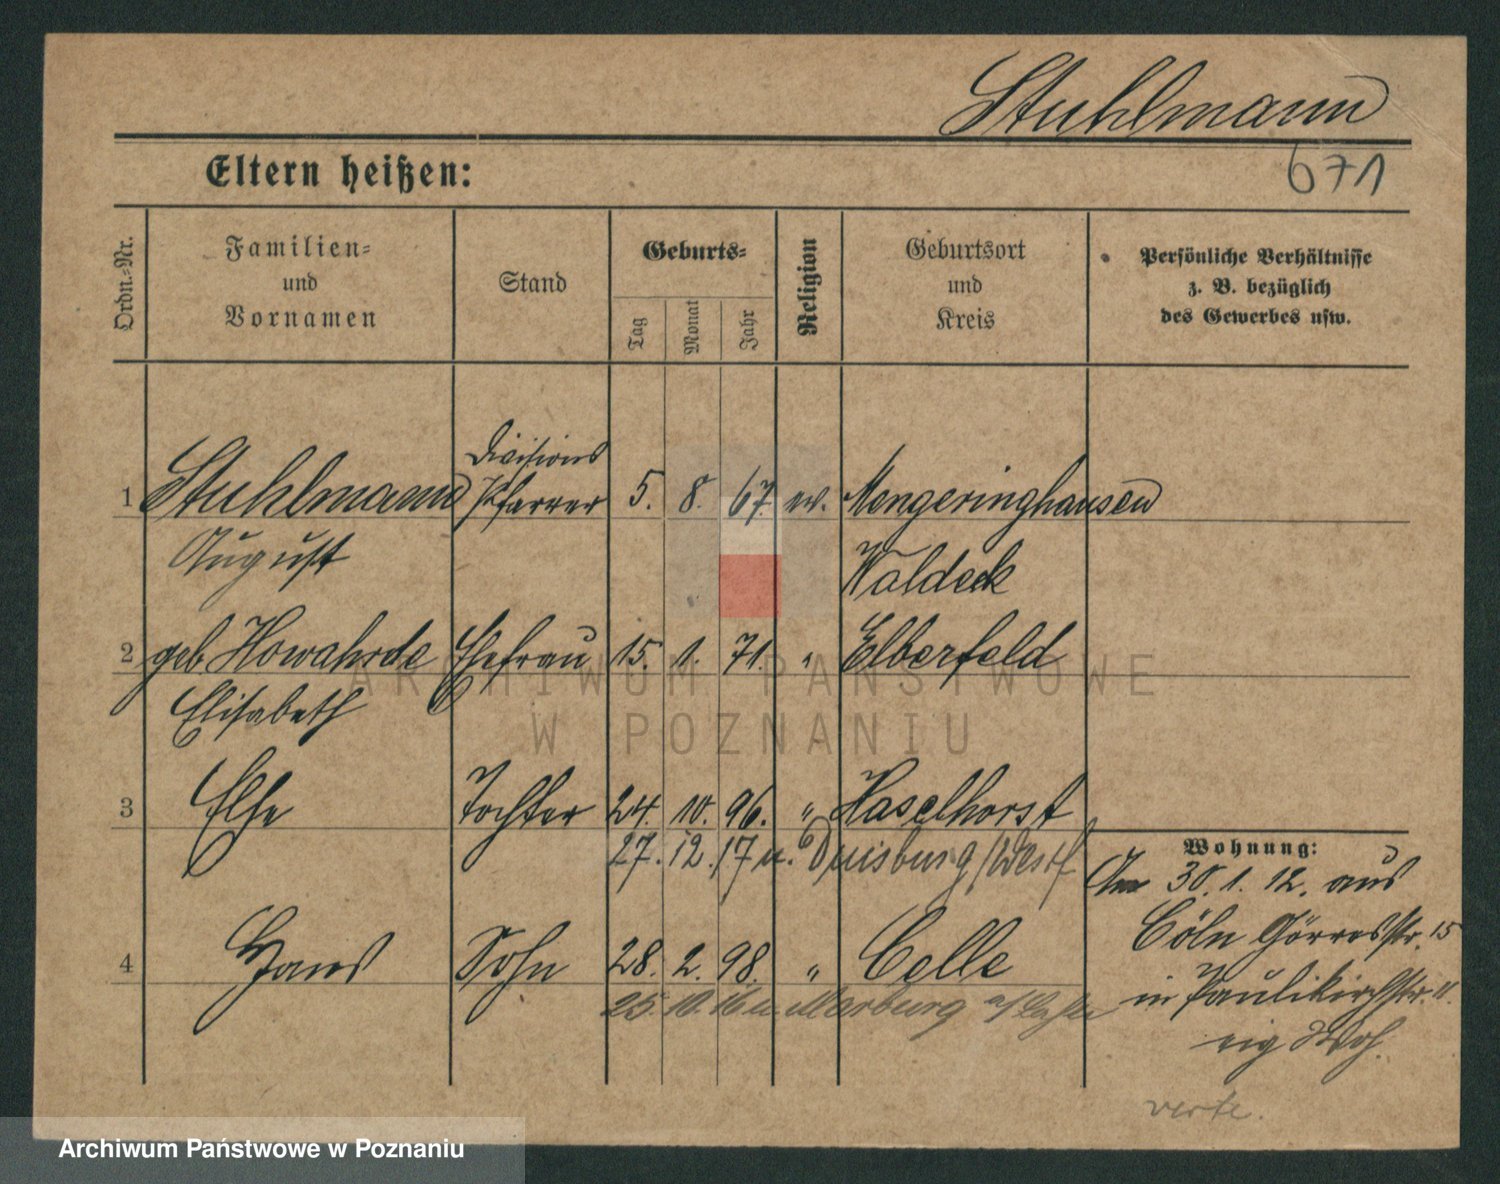 Stuhlmann
671
Eltern heißen:
Ordn.-Nr.
Familien-
und
Vornamen
Stand
Geburts-
Tag
Monat
Jahr
Religion
Geburtsort
und
Kreis
Persönliche Verhältnisse
z. B. bezüglich
des Gewerbes usw.
Divisions
1 Stuhlmann Pfarrer 5. 8. 67. ev. Mengeringhausen
August Waldeck
2 geb. Howahrde Ehefrau 15. 1. 71. " Elberfeld
Elisabeth
3 Else Tochter 24. 10. 96. " Haselhorst
27. 12. 17 n. Duisburg /Westf
Wohnung:
Am 30. 1. 12. aus
Cöln Görresstr. 15
4 Hans Sohn 28. 2. 98. " Celle
in Paulikirchstr. 11.
25. 10. 16 n. Marburg a/Lahn
eig Woh.
verte.
ARCHIWUM PAŃSTWOWE
W POZNANIU
Archiwum Państwowe w Poznaniu